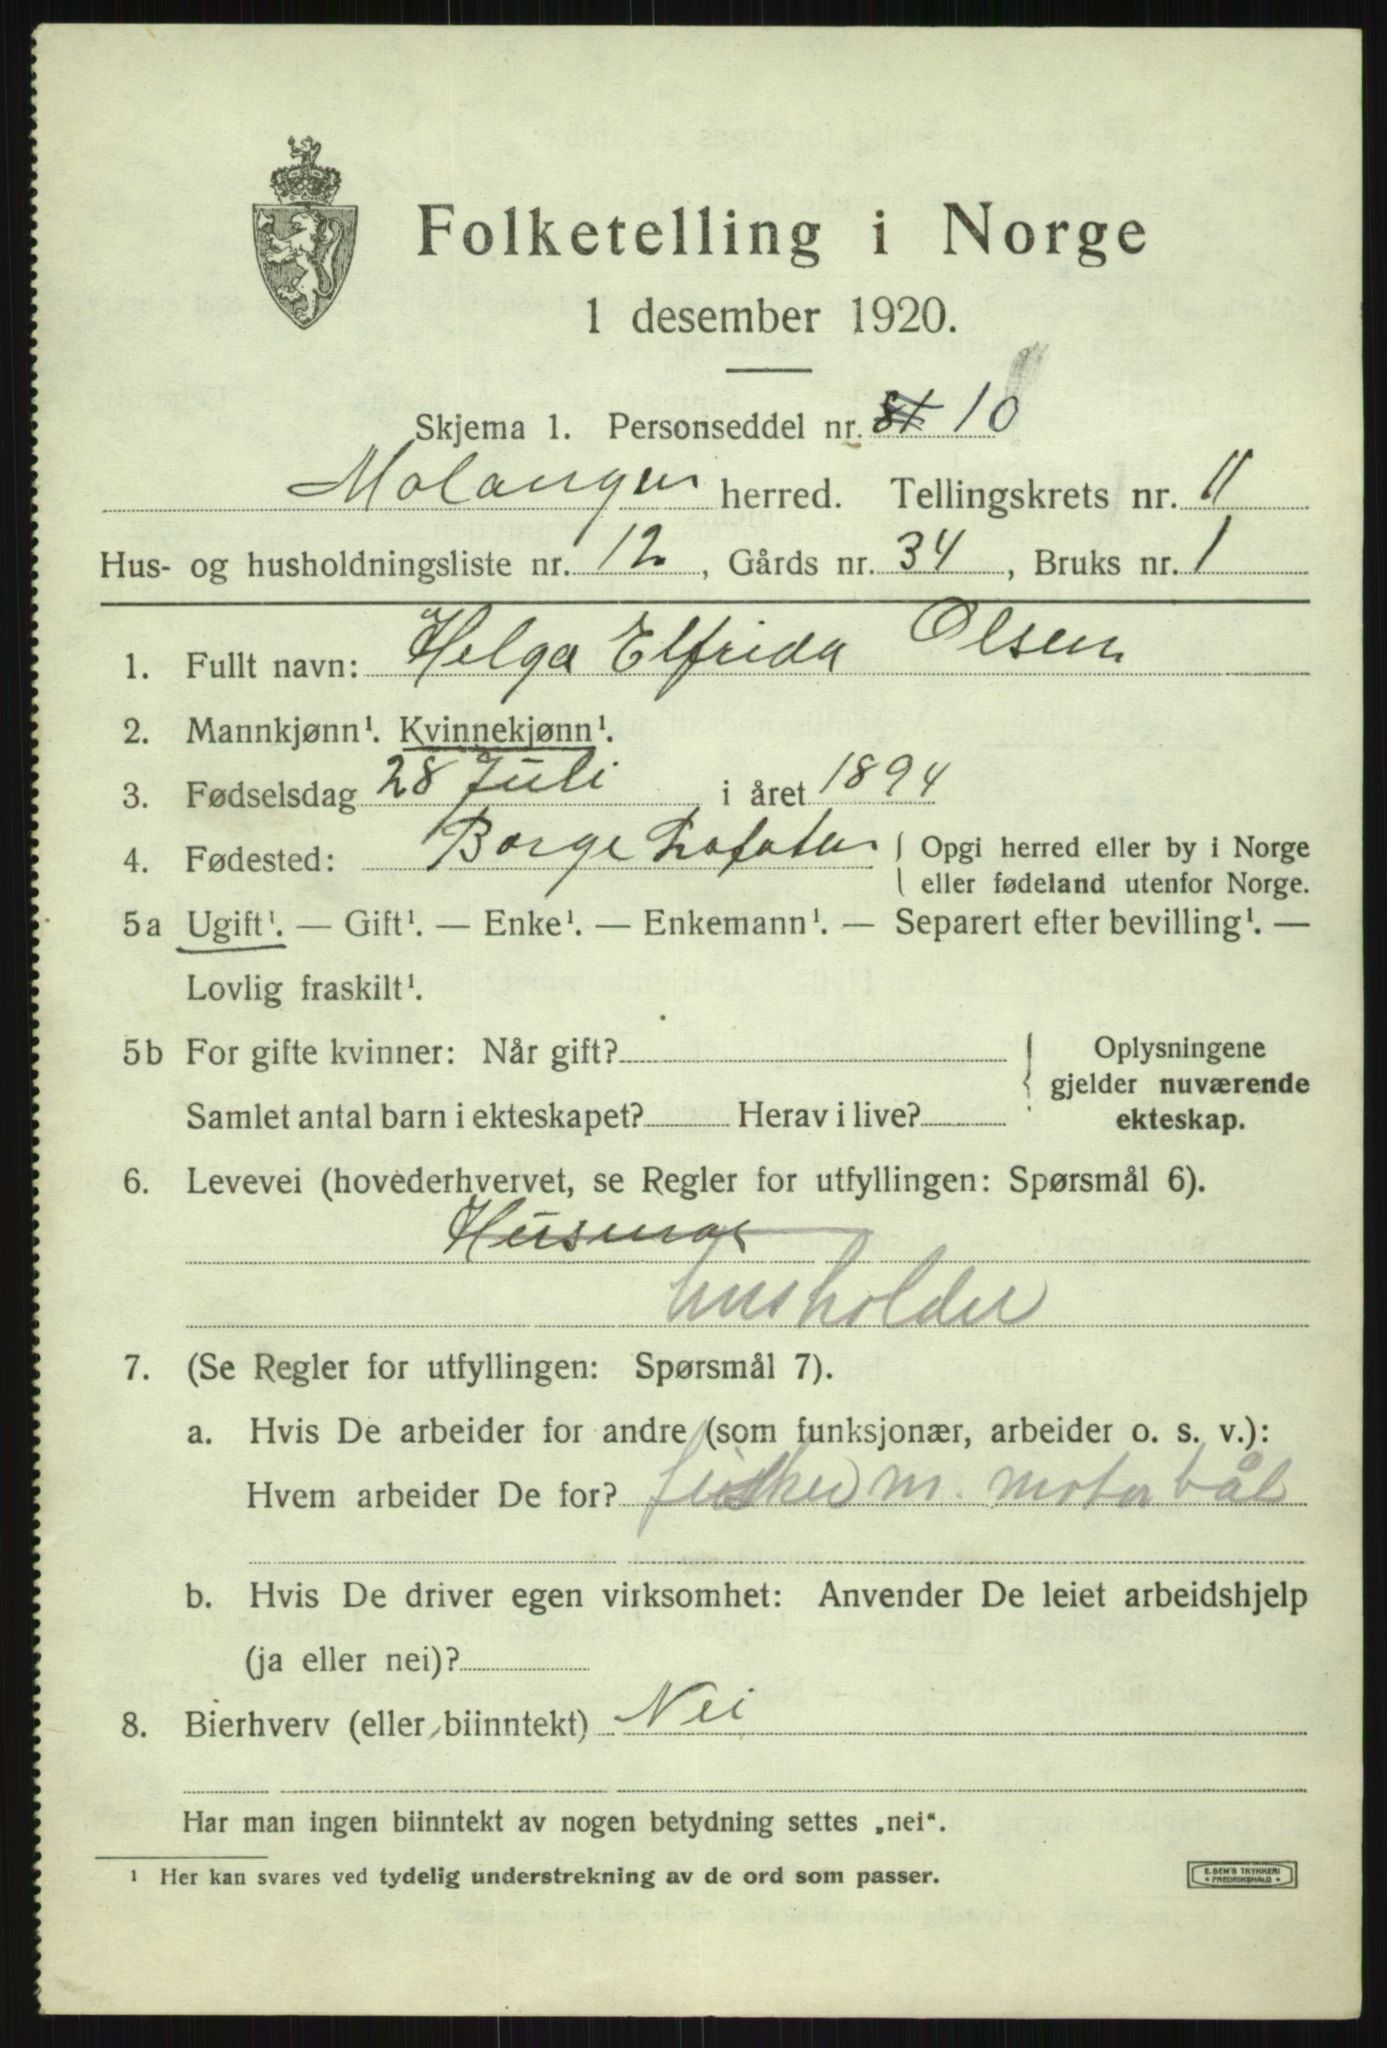 Folketelling i Norge
1 desember 1920.
Skjema 1. Personseddel nr. 10
Malangen herred. Tellingskrets nr. 11
Hus- og husholdningsliste nr. 12, Gårds nr. 34, Bruks nr. 1
1. Fullt navn: Helga Elfrida Olsen
2. Mannkjønn¹. Kvinnekjønn¹.
3. Fødselsdag 28 Juli i året 1894
4. Fødested: Borge Lofoten { Opgi herred eller by i Norge
eller fødeland utenfor Norge.
5a Ugift¹. — Gift¹. — Enke¹. — Enkemann¹. — Separert efter bevilling¹. —
Lovlig fraskilt¹.
5b For gifte kvinner: Når gift? Oplysningene
gjelder nuværende
Samlet antal barn i ekteskapet? Herav i live? ekteskap.
6. Levevei (hovederhvervet, se Regler for utfyllingen: Spørsmål 6).
Husmor
husholder
7. (Se Regler for utfyllingen: Spørsmål 7).
a. Hvis De arbeider for andre (som funksjonær, arbeider o. s. v.):
Hvem arbeider De for? fisker m. motorbåt
b. Hvis De driver egen virksomhet: Anvender De leiet arbeidshjelp
(ja eller nei)?
8. Bierhverv (eller biinntekt) Nei
Har man ingen biinntekt av nogen betydning settes „nei“.
¹ Her kan svares ved tydelig understrekning av de ord som passer.
E. SEM'S TRYKKERI
• FREDRIKSHALD •